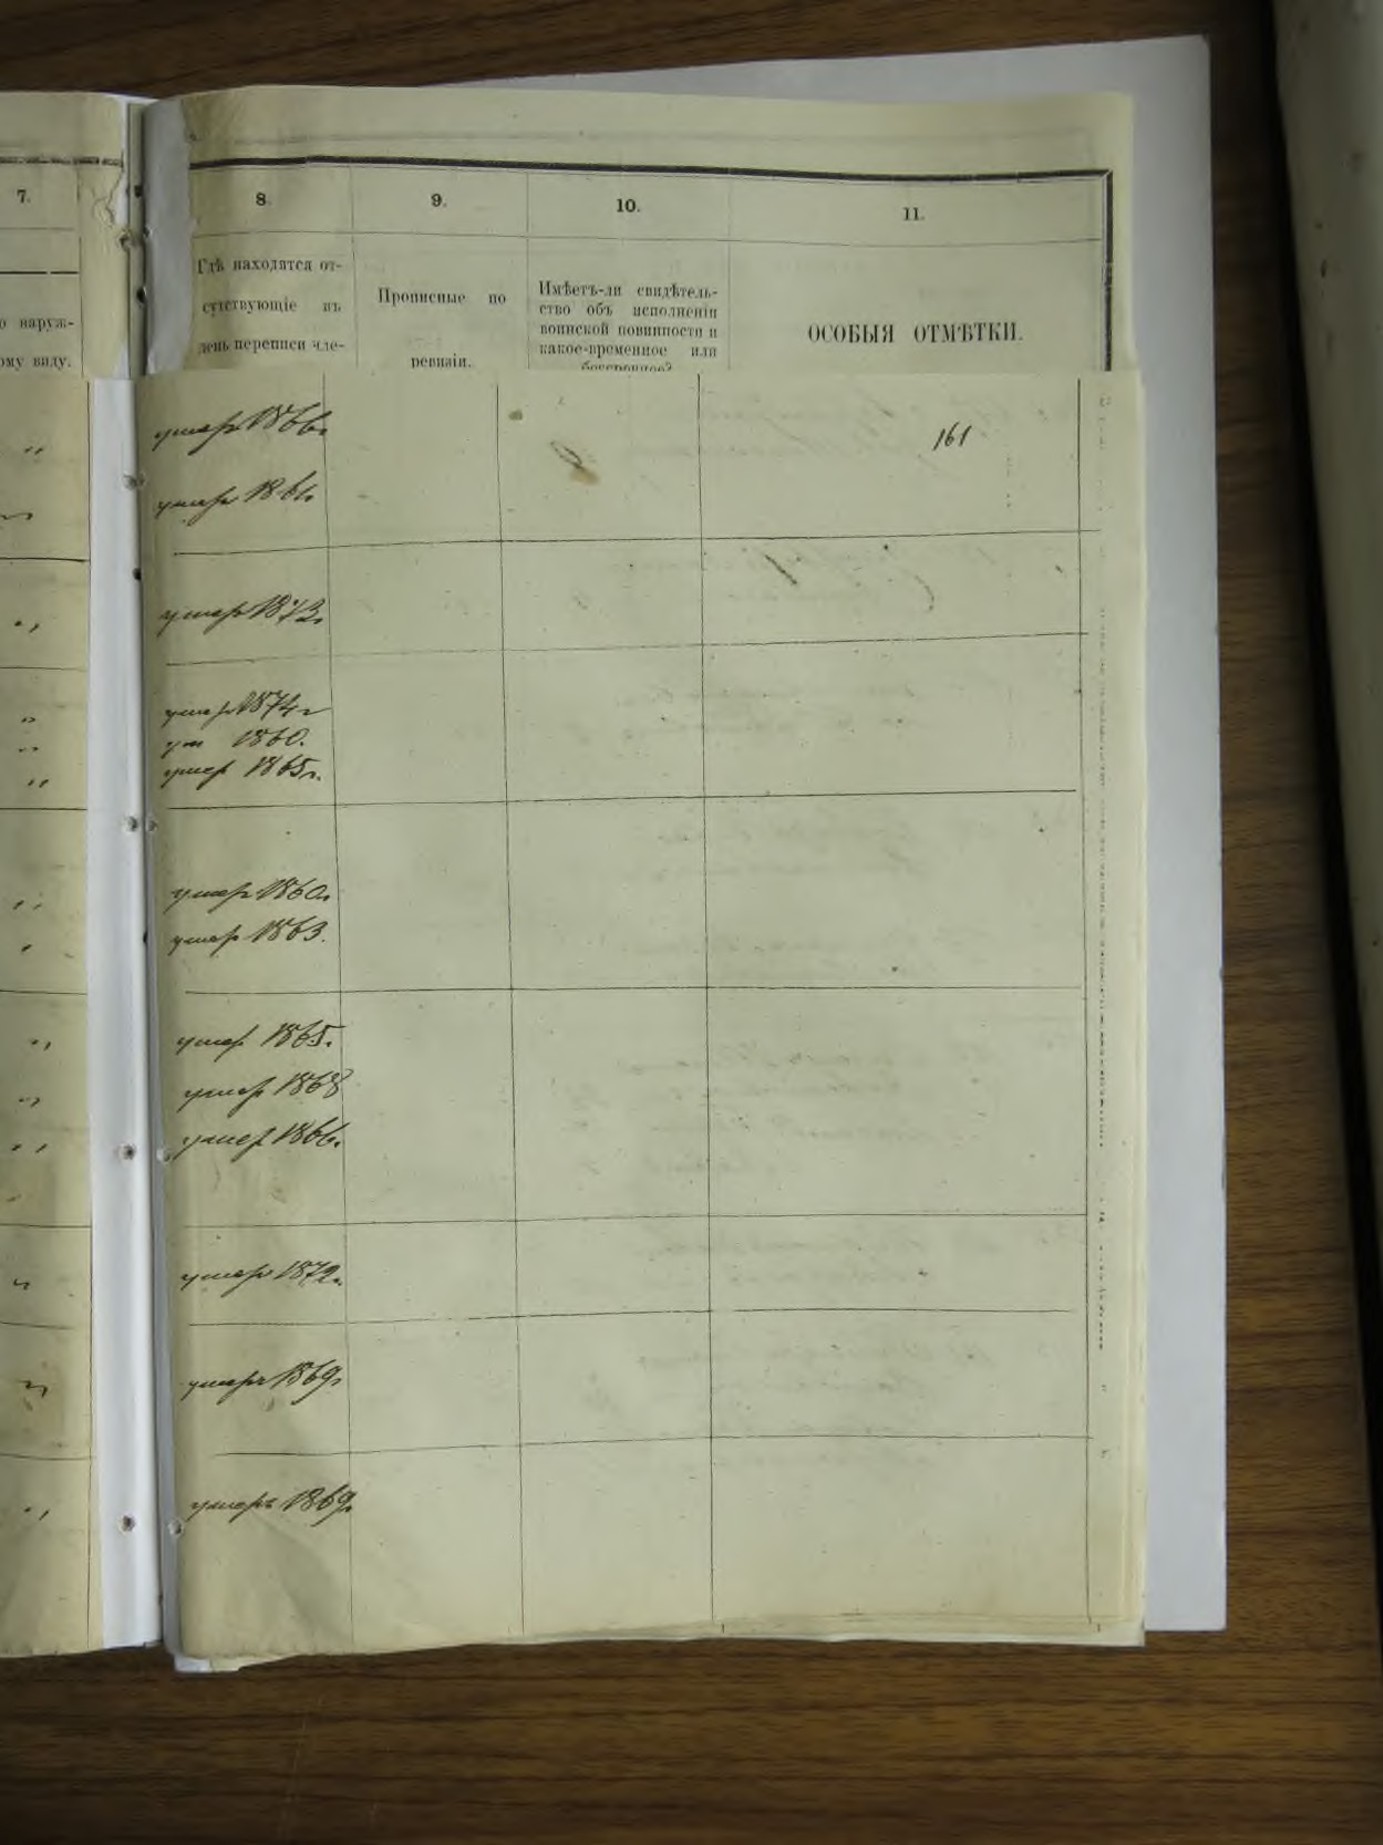 7.
8.
9.
10.
11.
о наруж-
ому виду.
Гдѣ находятся от-
сутствующіе въ
день переписи чле-
Прописные по
ревизіи.
Имѣетъ-ли свидѣтель-
ство объ исполненіи
воинской повинности и
какое-временное или
безсрочное?
ОСОБЫЯ ОТМѢТКИ.
161
умер 1866г.
умер 1861г.
умер 1873г.
умер 1874г
ум 1860.
умер 1865г.
умер 1860г.
умер 1863.
умер 1865г.
умер 1868
умер 1866г.
умер 1872г.
умеръ 1869г.
умеръ 1869г.